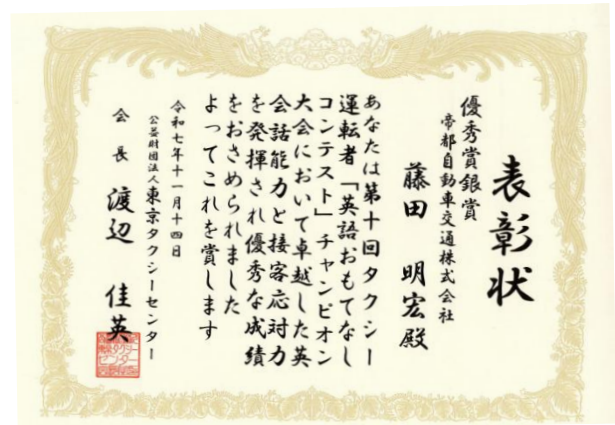 表彰状
優秀賞銀賞
帝都自動車交通株式会社
藤田 明宏殿
あなたは第十回タクシー
運転者「英語おもてなし
コンテスト」チャンピオン
大会において卓越した英
会話能力と接客応対力
を発揮され優秀な成績
をおさめられました
よってこれを賞します
令和七年十一月十四日
公益財団法人東京タクシーセンター
会長 渡辺 佳英